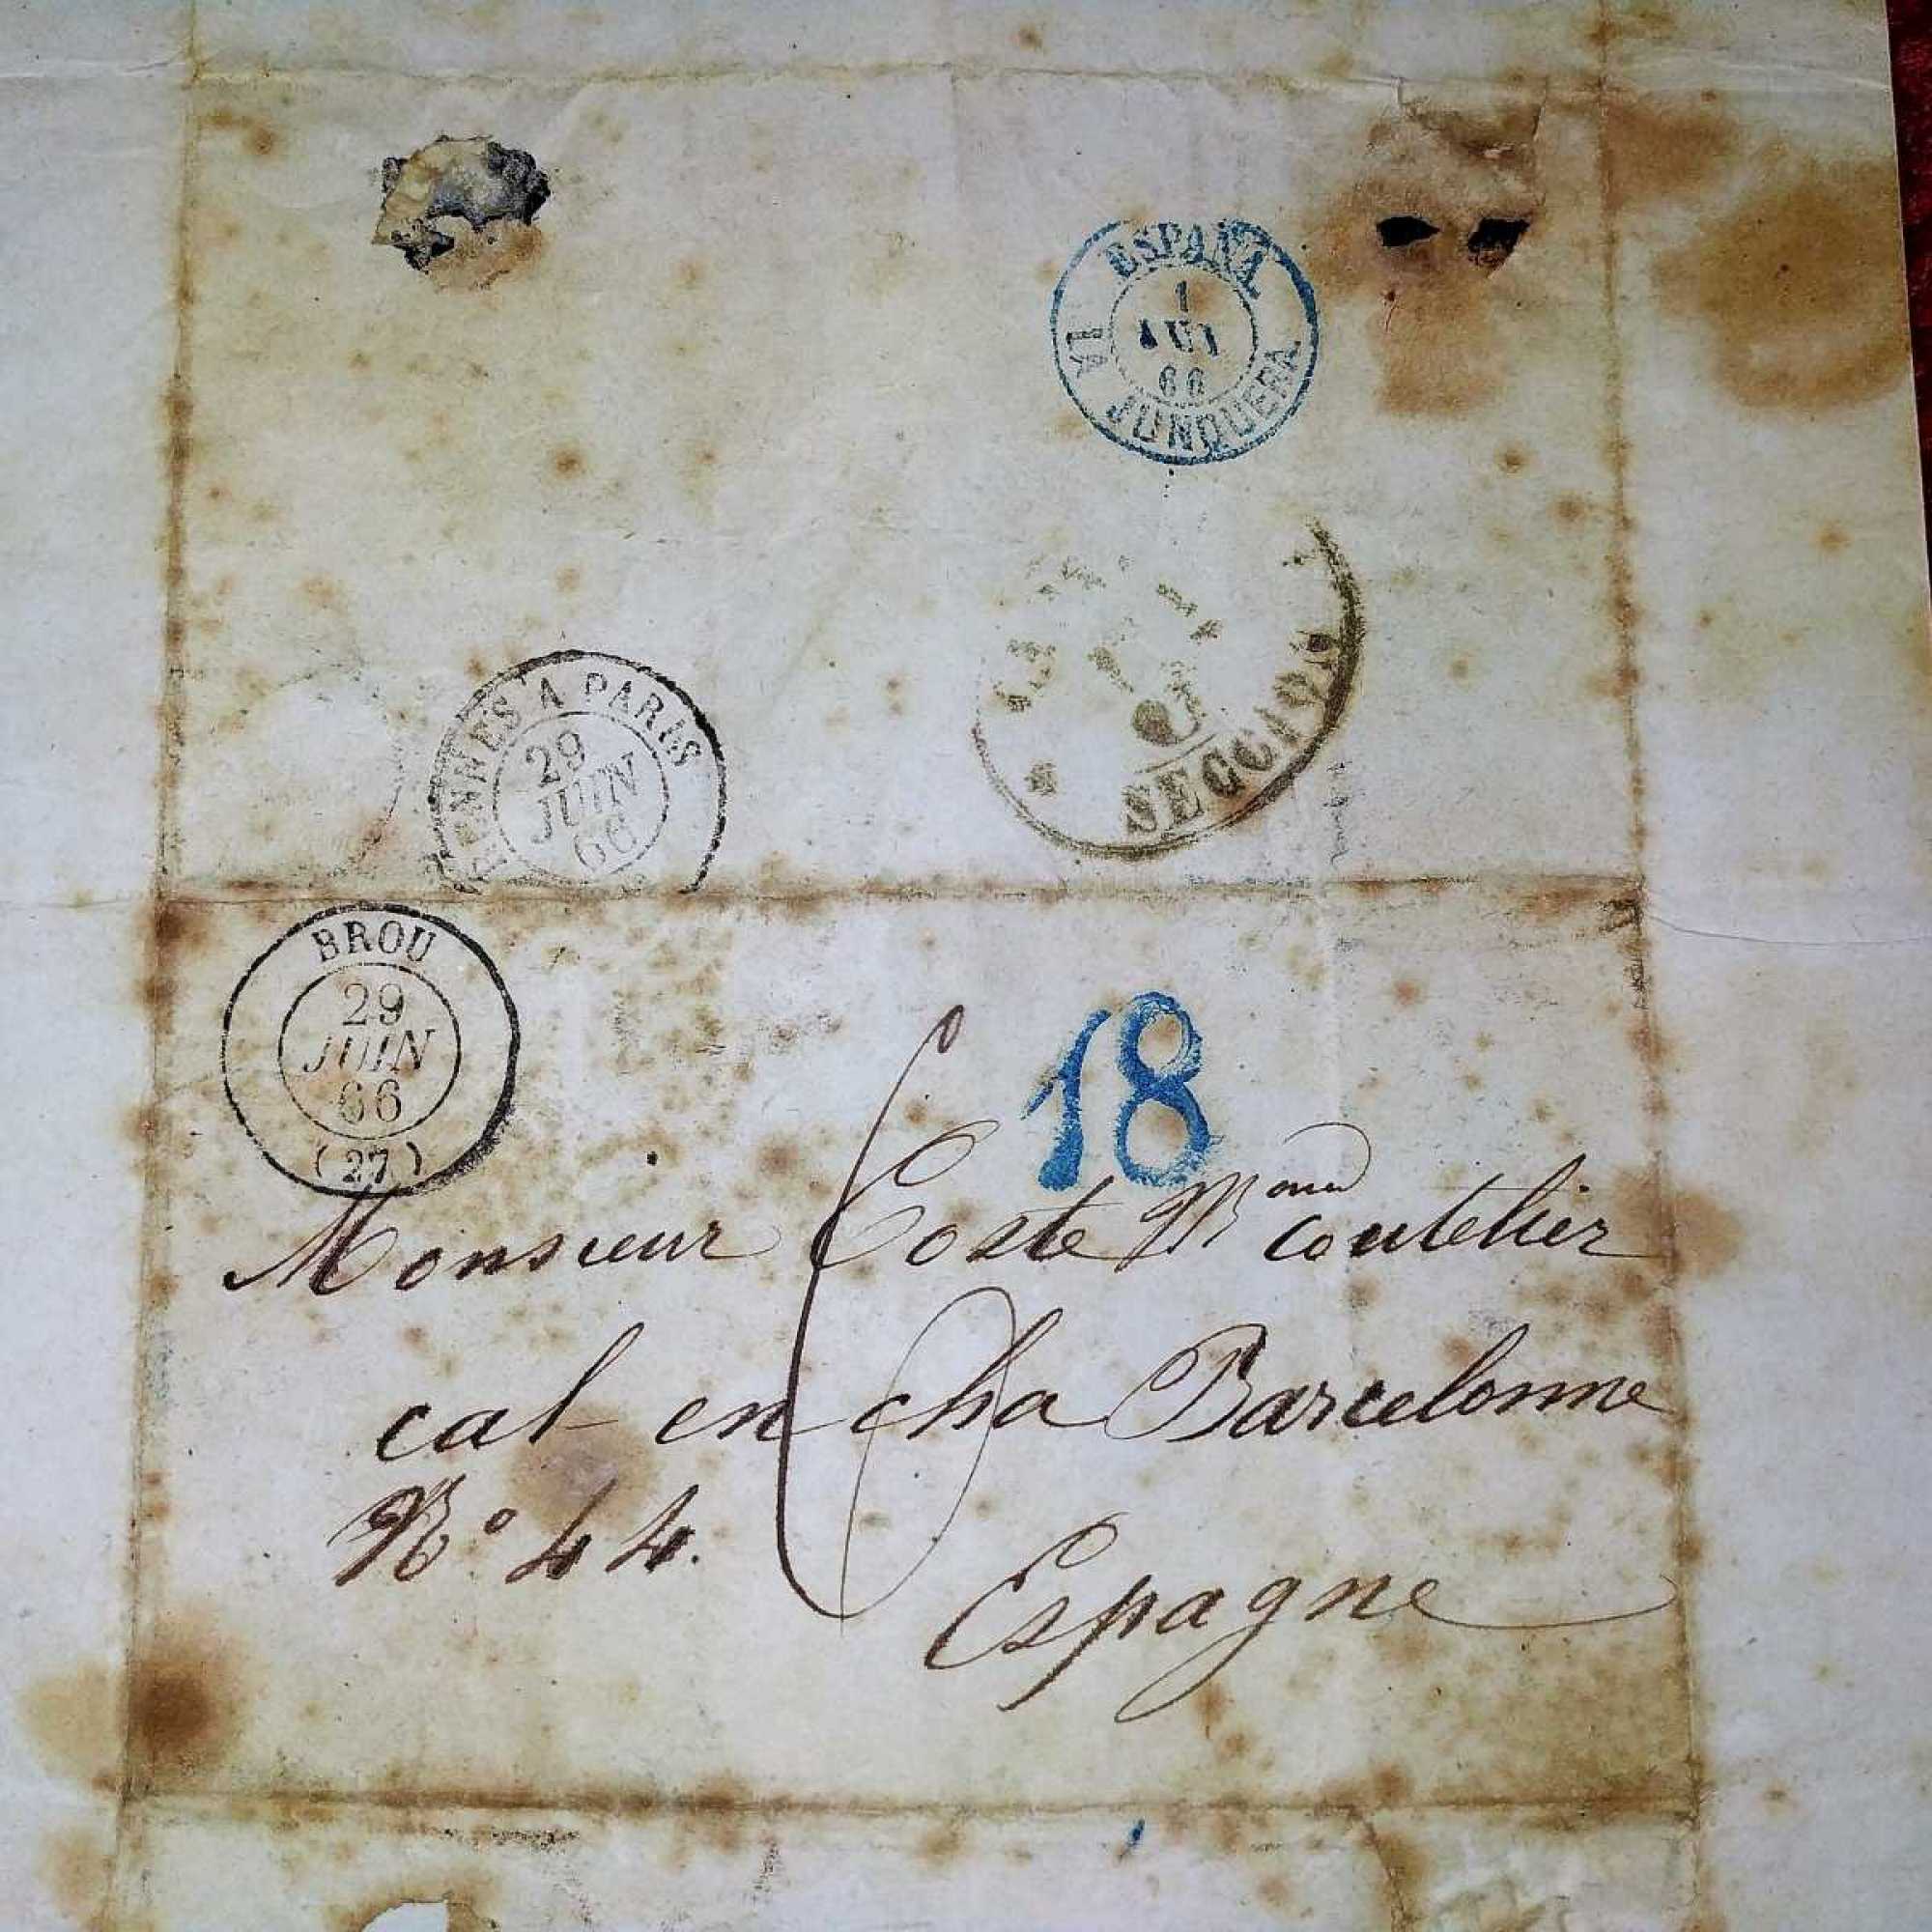 ESPAÑA
1
JUL
66
LA JUNQUERA
RENNES A PARIS
29
JUIN
66
BROU
29
JUIN
66
(27)
18
Monsieur Coste coutelier
cal en cha Barcelonne
Nº 44.
Espagne